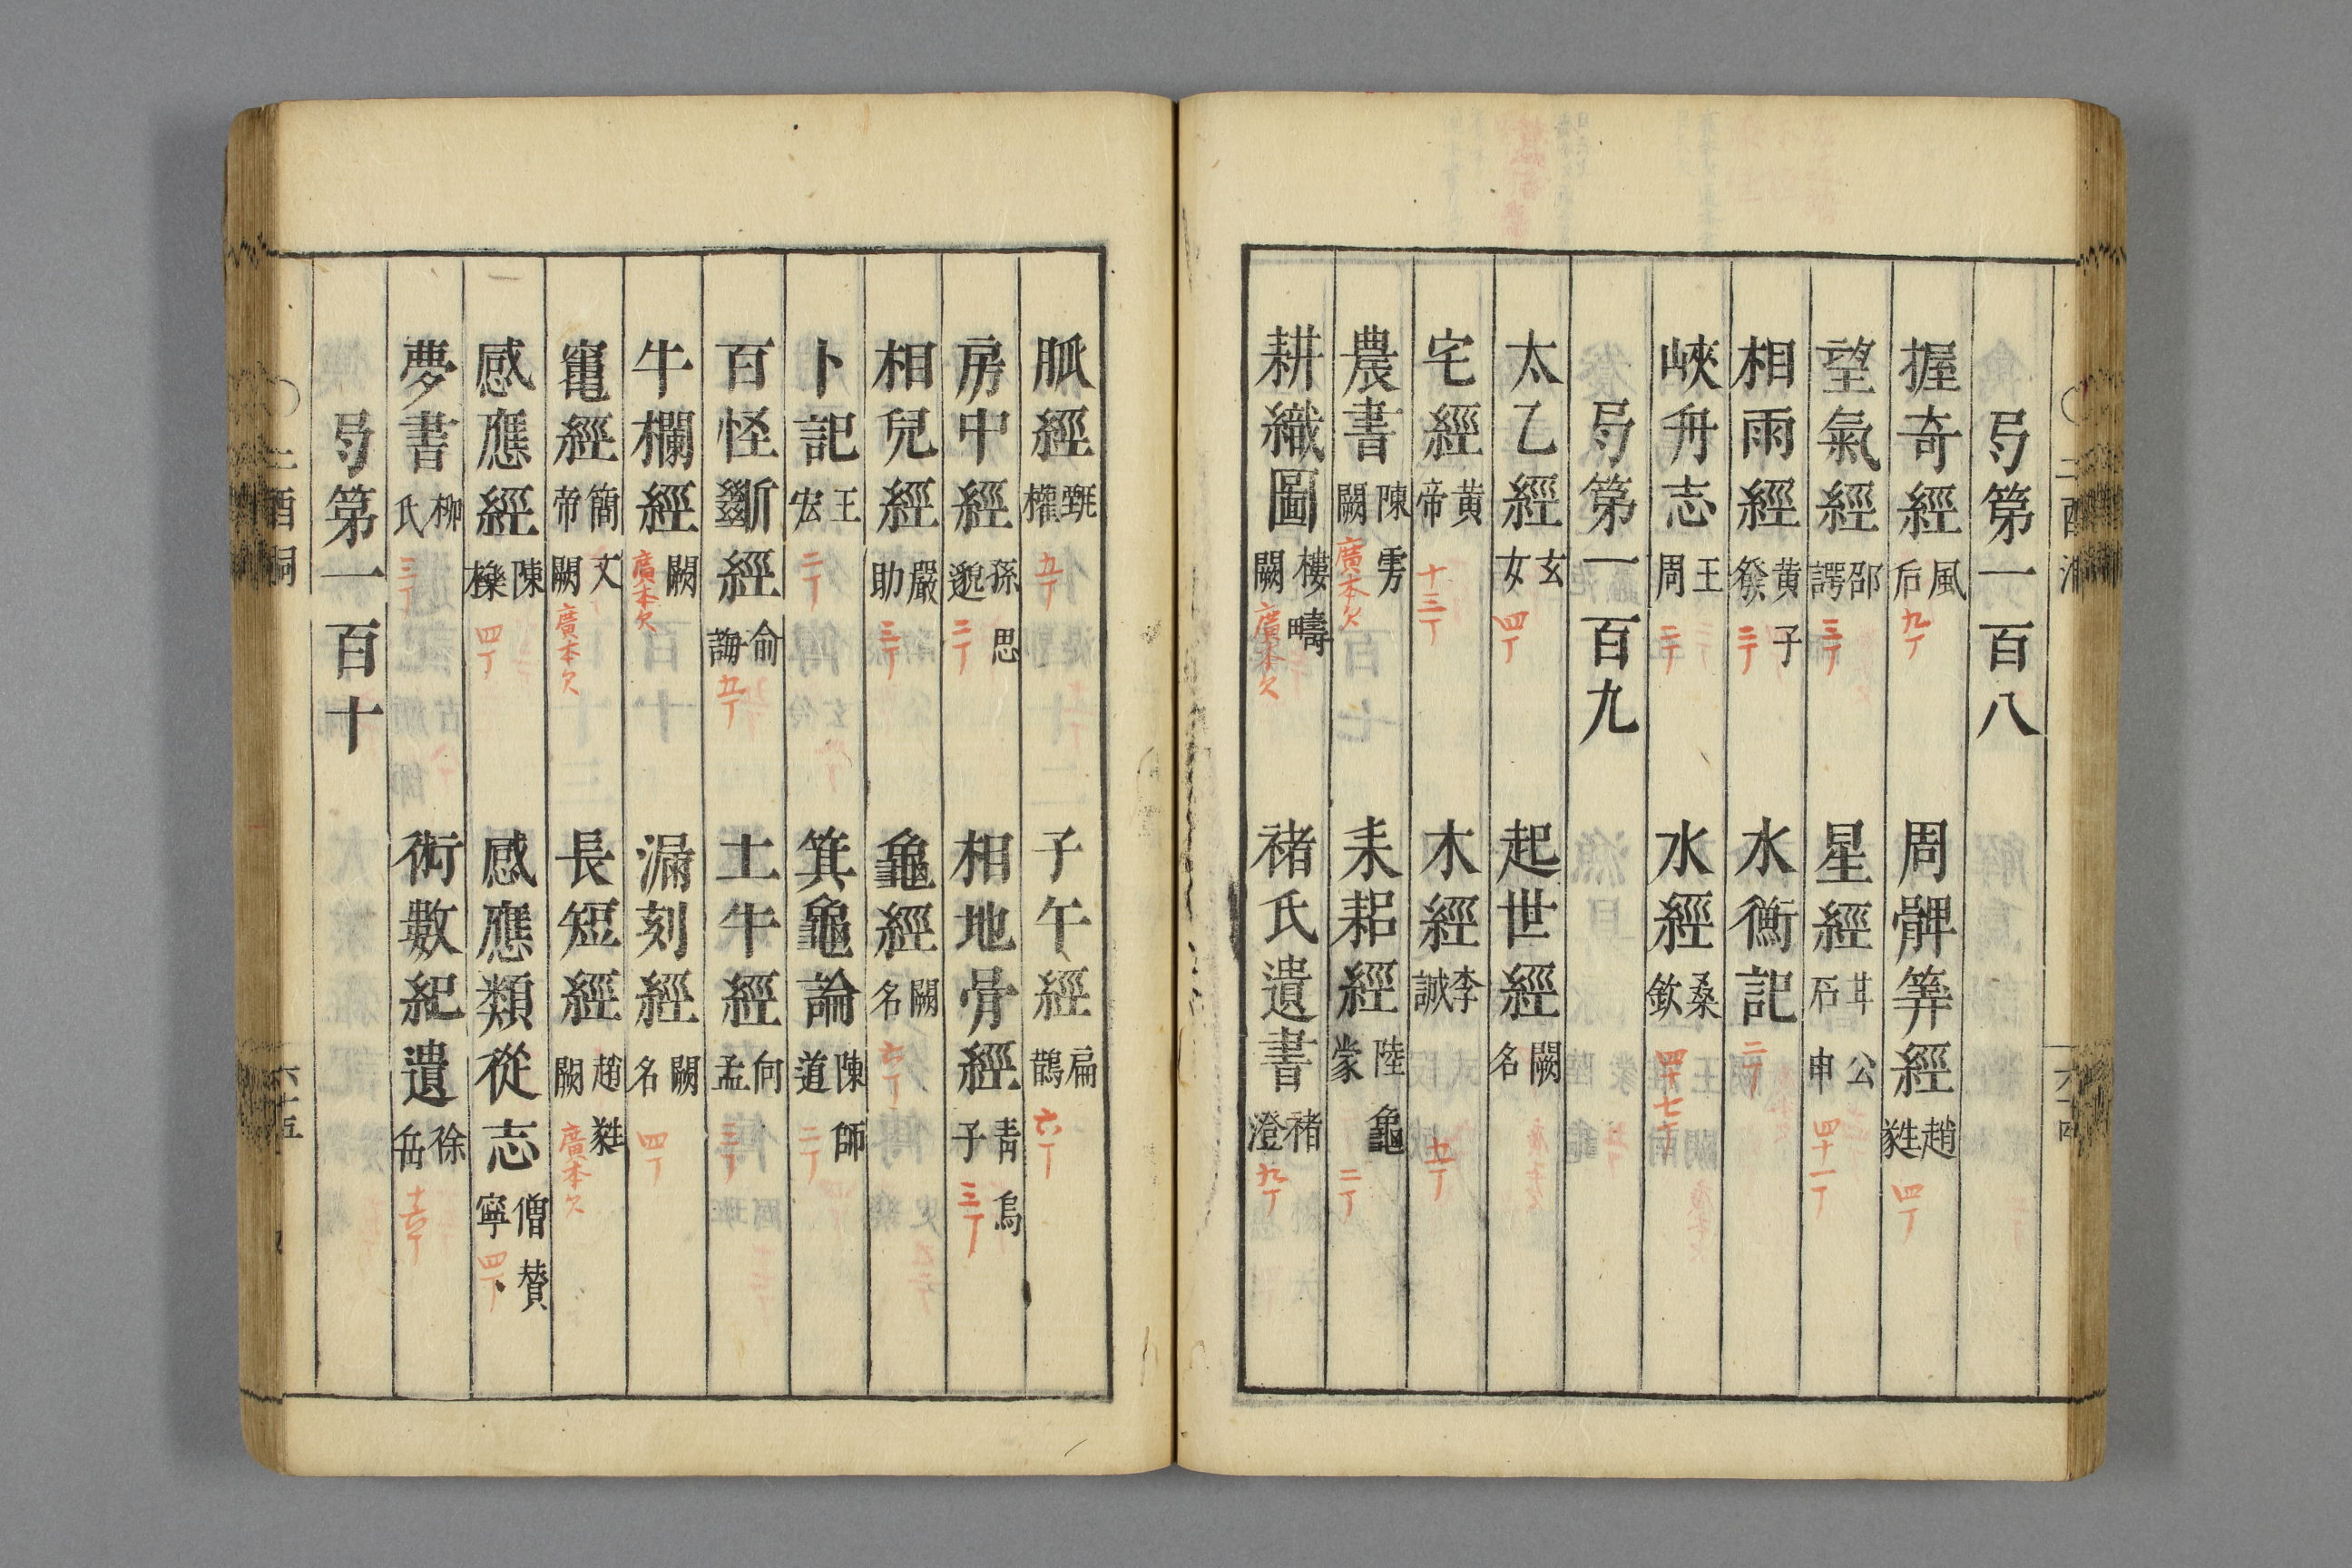 弓第一百八
握奇經 風后 九丁 周髀筭經 趙㽔 四丁
望氣經 邵諤 三丁 星經 甘公石申 四十一丁
相雨經 黃子發 三丁 水衡記 二丁
峽舟志 王周 二丁 水經 桑欽 四十七丁
弓第一百九
太乙經 玄女 四丁 起世經 闕名
宅經 黃帝 十三丁 木經 李誡 五丁
農書 陳旉闕 廣本欠 耒耜經 陸龜蒙 二丁
耕織圖 樓疇闕 廣本欠 褚氏遺書 褚澄 九丁
脈經 甄權 五丁 子午經 扁鵲 六丁
房中經 孫思邈 二丁 相地骨經 青烏子 三丁
相兒經 嚴助 三丁 龜經 闕名 六丁
卜記 王宏 二丁 箕龜論 陳師道 二丁
百怪斷經 俞誨 五丁 土牛經 向孟 三丁
牛欄經 闕 廣本欠 漏刻經 闕名 四丁
竈經 簡文帝闕 廣本欠 長短經 趙㽔闕 廣本欠
感應經 陳櫟 四丁 感應類從志 僧贊寧 四丁
夢書 柳氏 三丁 術數紀遺 徐岳
弓第一百十
二酉洞 六十五